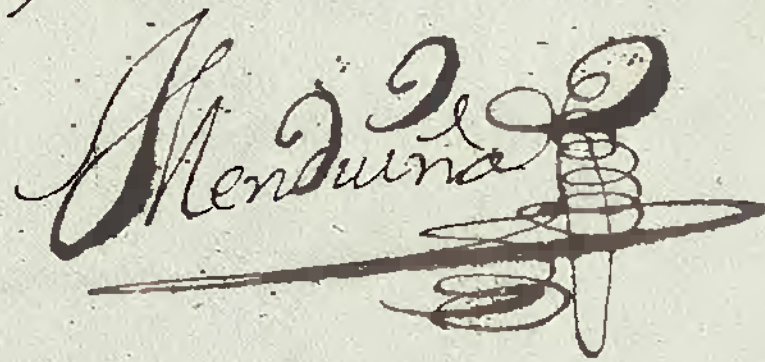 Menduiña